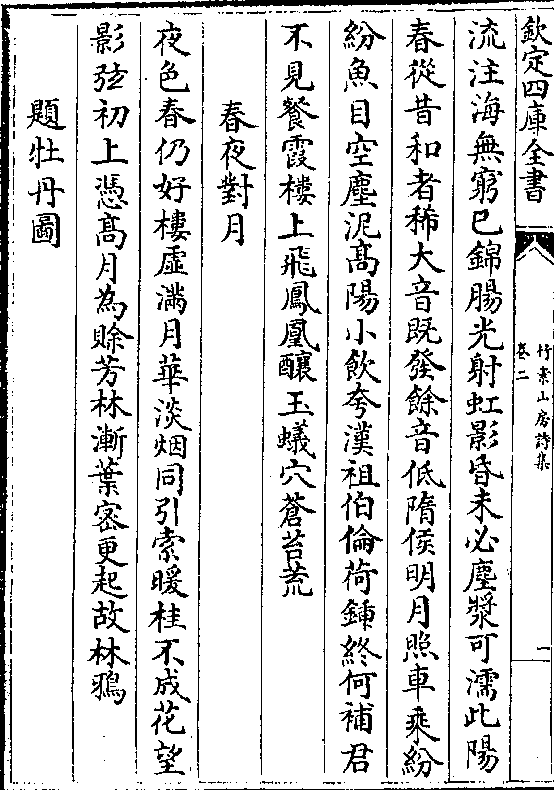 欽定四庫全書
竹素山房詩集
卷二
一
流注海無窮已錦腸光射虹影昏未必塵漿可濡此陽
春從昔和者稀大音既發餘音低隋侯明月照車乘紛
紛魚目空塵泥高陽小飲夸漢祖伯倫荷鍤終何補君
不見餐霞樓上飛鳳凰釀玉蟻穴蒼苔荒
春夜對月
夜色春仍好樓虛滿月華淡烟同引索暖桂不成花望
影弦初上憑高月為賒芳林漸葉密更起故林鴉
題牡丹圖